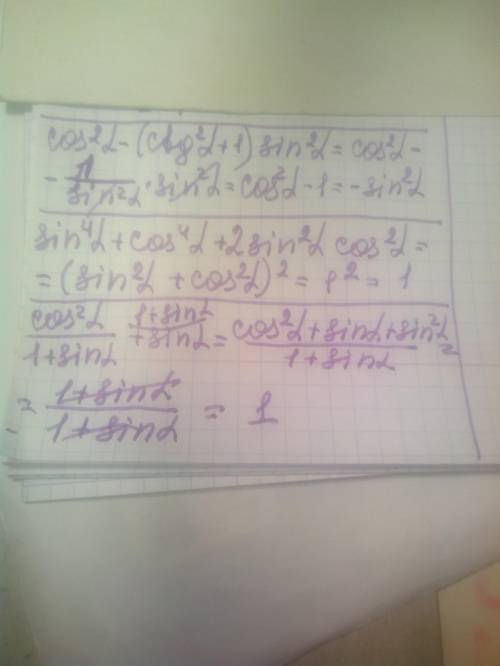 cos²α - (ctg²α + 1) sin²α = cos²α -
- 1/sin²α · sin²α = cos²α - 1 = - sin²α
sin⁴α + cos⁴α + 2 sin²α cos²α =
= (sin²α + cos²α)² = 1² = 1
cos²α/(1 + sinα) + sinα^(1 + sinα) = (cos²α + sinα + sin²α)/(1 + sinα) =
= (1 + sinα)/(1 + sinα) = 1